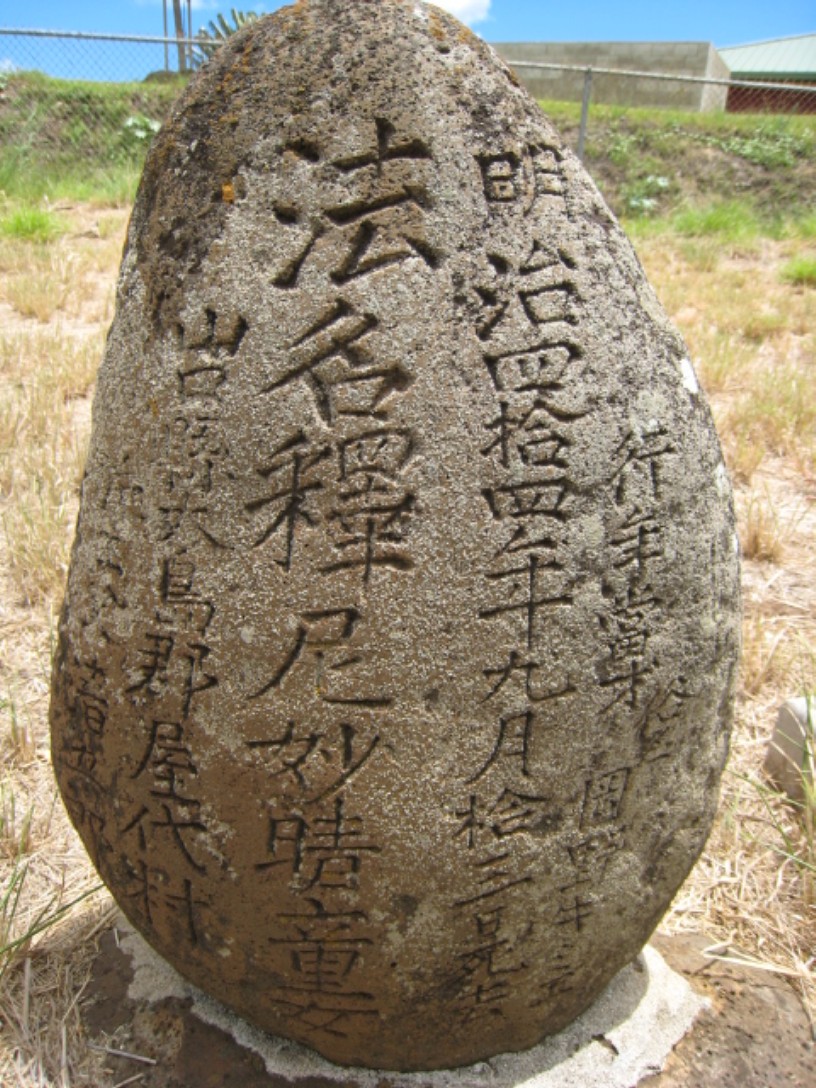 行年當才 岡野
明治四拾四年九月拾三日死去
法名釋尼妙晴童女
山口縣大島郡屋代村